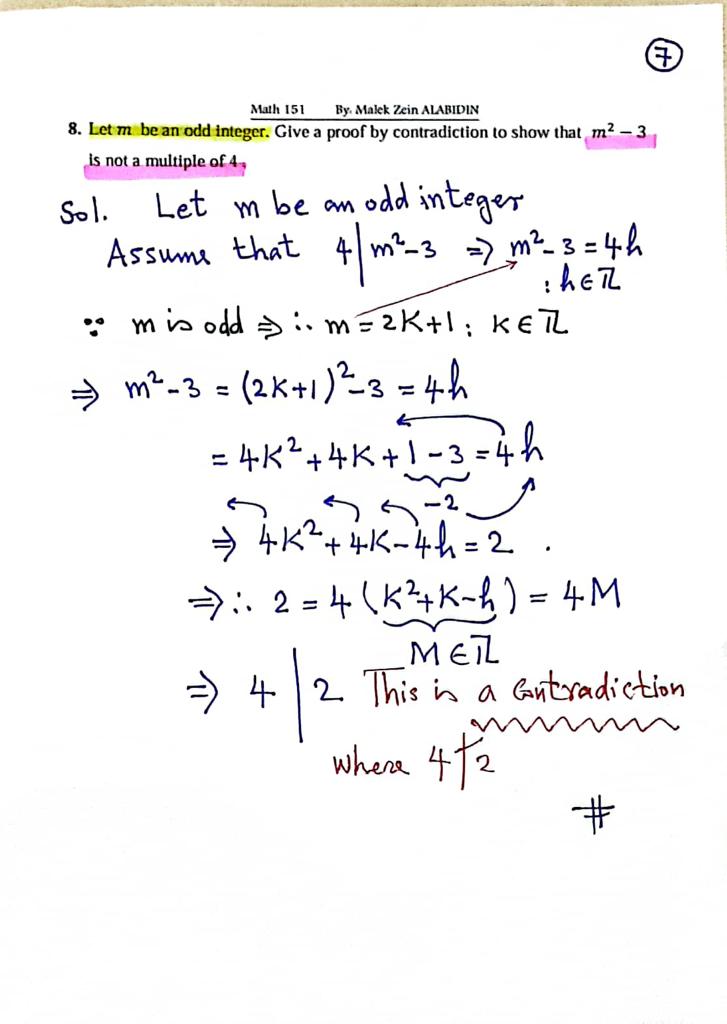 7
Math 151 By. Malek Zein ALABIDIN
8. Let m be an odd integer. Give a proof by contradiction to show that m² – 3
is not a multiple of 4.
Sol. Let m be an odd integer
Assume that 4|m²-3 ⇒ m²-3 = 4h
: h∈ℤ
∵ m is odd ⇒ ∴ m = 2K+1 ; K∈ℤ
⇒ m²-3 = (2K+1)²-3 = 4h
= 4K²+4K+1-3 = 4h
-2
⇒ 4K²+4K-4h = 2 .
⇒ ∴ 2 = 4(K²+K-h) = 4M
M∈ℤ
⇒ 4 | 2 This is a Contradiction
where 4∤2
#